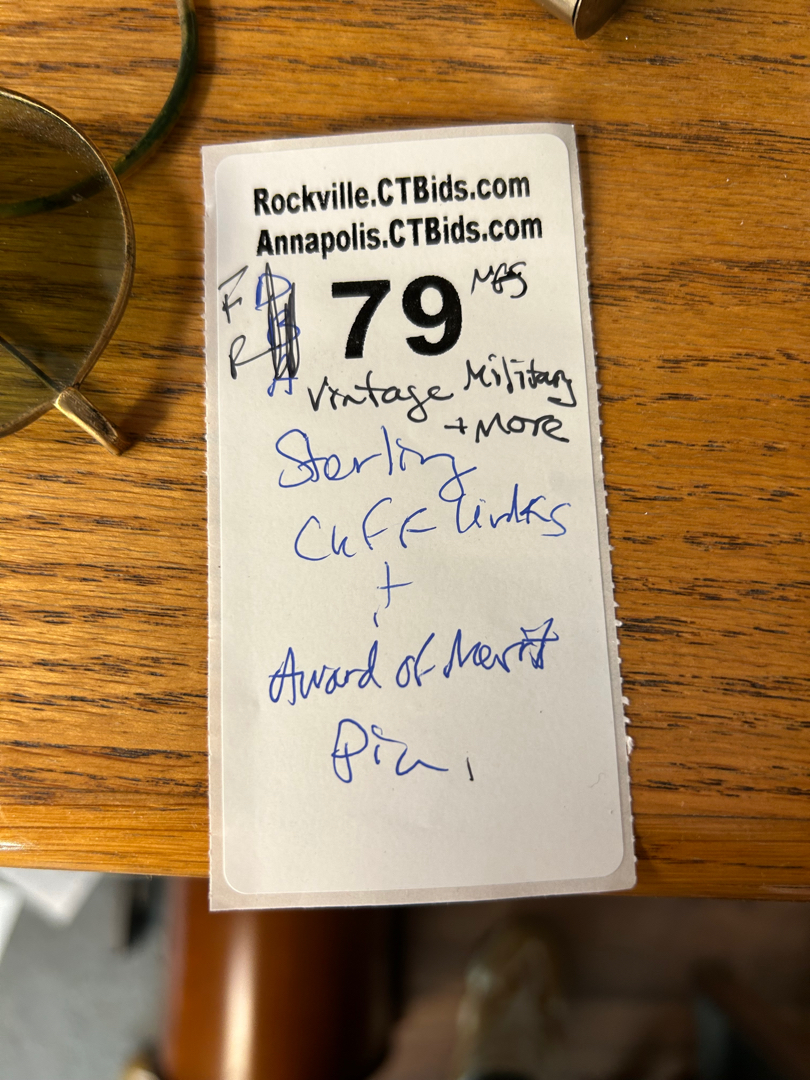 Rockville.CTBids.com
Annapolis.CTBids.com
79
Vintage Military
+ More
Sterling
Cuff links
+
Award of Merit
Pin,